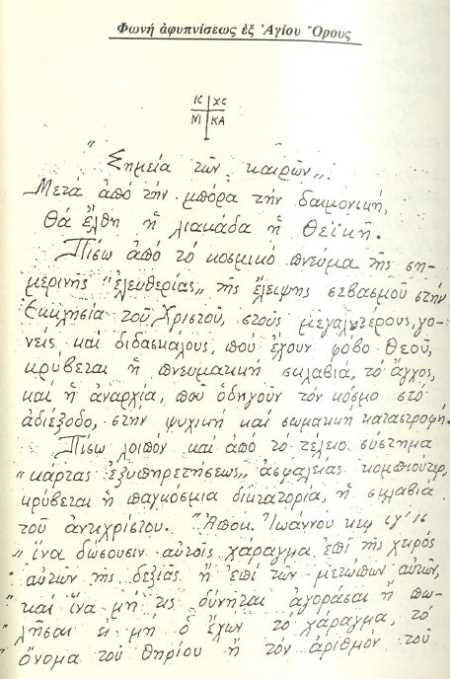 Φωνή ἀφυπνίσεως ἐξ Ἁγίου Ὄρους
ΙC ΧC
ΝΙ ΚΑ
"Σημεῖα τῶν καιρῶν".
Μετά ἀπό τήν μπόρα τήν δαιμονική,
θά ἔλθη ἡ λιακάδα ἡ Θεϊκή.
Πίσω ἀπό τό κοσμικό πνεῦμα τῆς ση-
μερινῆς "ἐλευθερίας" τῆς ἔλειψης σεβασμοῦ στήν
Ἐκκλησία τοῦ Χριστοῦ, στούς μεγαλυτέρους, γο-
νεῖς καί διδασκάλους, πού ἔχουν φόβο Θεοῦ,
κρύβεται ἡ πνευματική σκλαβιά, τό ἄγχος,
καί ἡ ἀναρχία, πού ὁδηγοῦν τόν κόσμο στό
ἀδιέξοδο, στήν ψυχική καί σωματική καταστροφή.
Πίσω λοιπόν καί ἀπό τό τέλειο σύστημα
"κάρτας ἐξυπηρετήσεως" ἀσφαλείας κομπιούτερ,
κρύβεται ἡ παγκόσμια δικτατορία, ἡ σκλαβιά
τοῦ ἀντιχρίστου. "Ἀποκ. Ἰωάννου κεφ ιγ' 16
"ἵνα δώσουσιν αὐτοῖς χάραγμα ἐπί τῆς χειρός
αὐτῶν τῆς δεξιᾶς ἤ ἐπί τῶν μετώπων αὐτῶν,
"καί ἵνα μή τις δύνηται ἀγοράσαι ἤ πω-
"λῆσαι εἰ μή ὁ ἔχων τό χάραγμα, τό
"ὄνομα τοῦ θηρίου ἤ τόν ἀριθμόν τοῦ